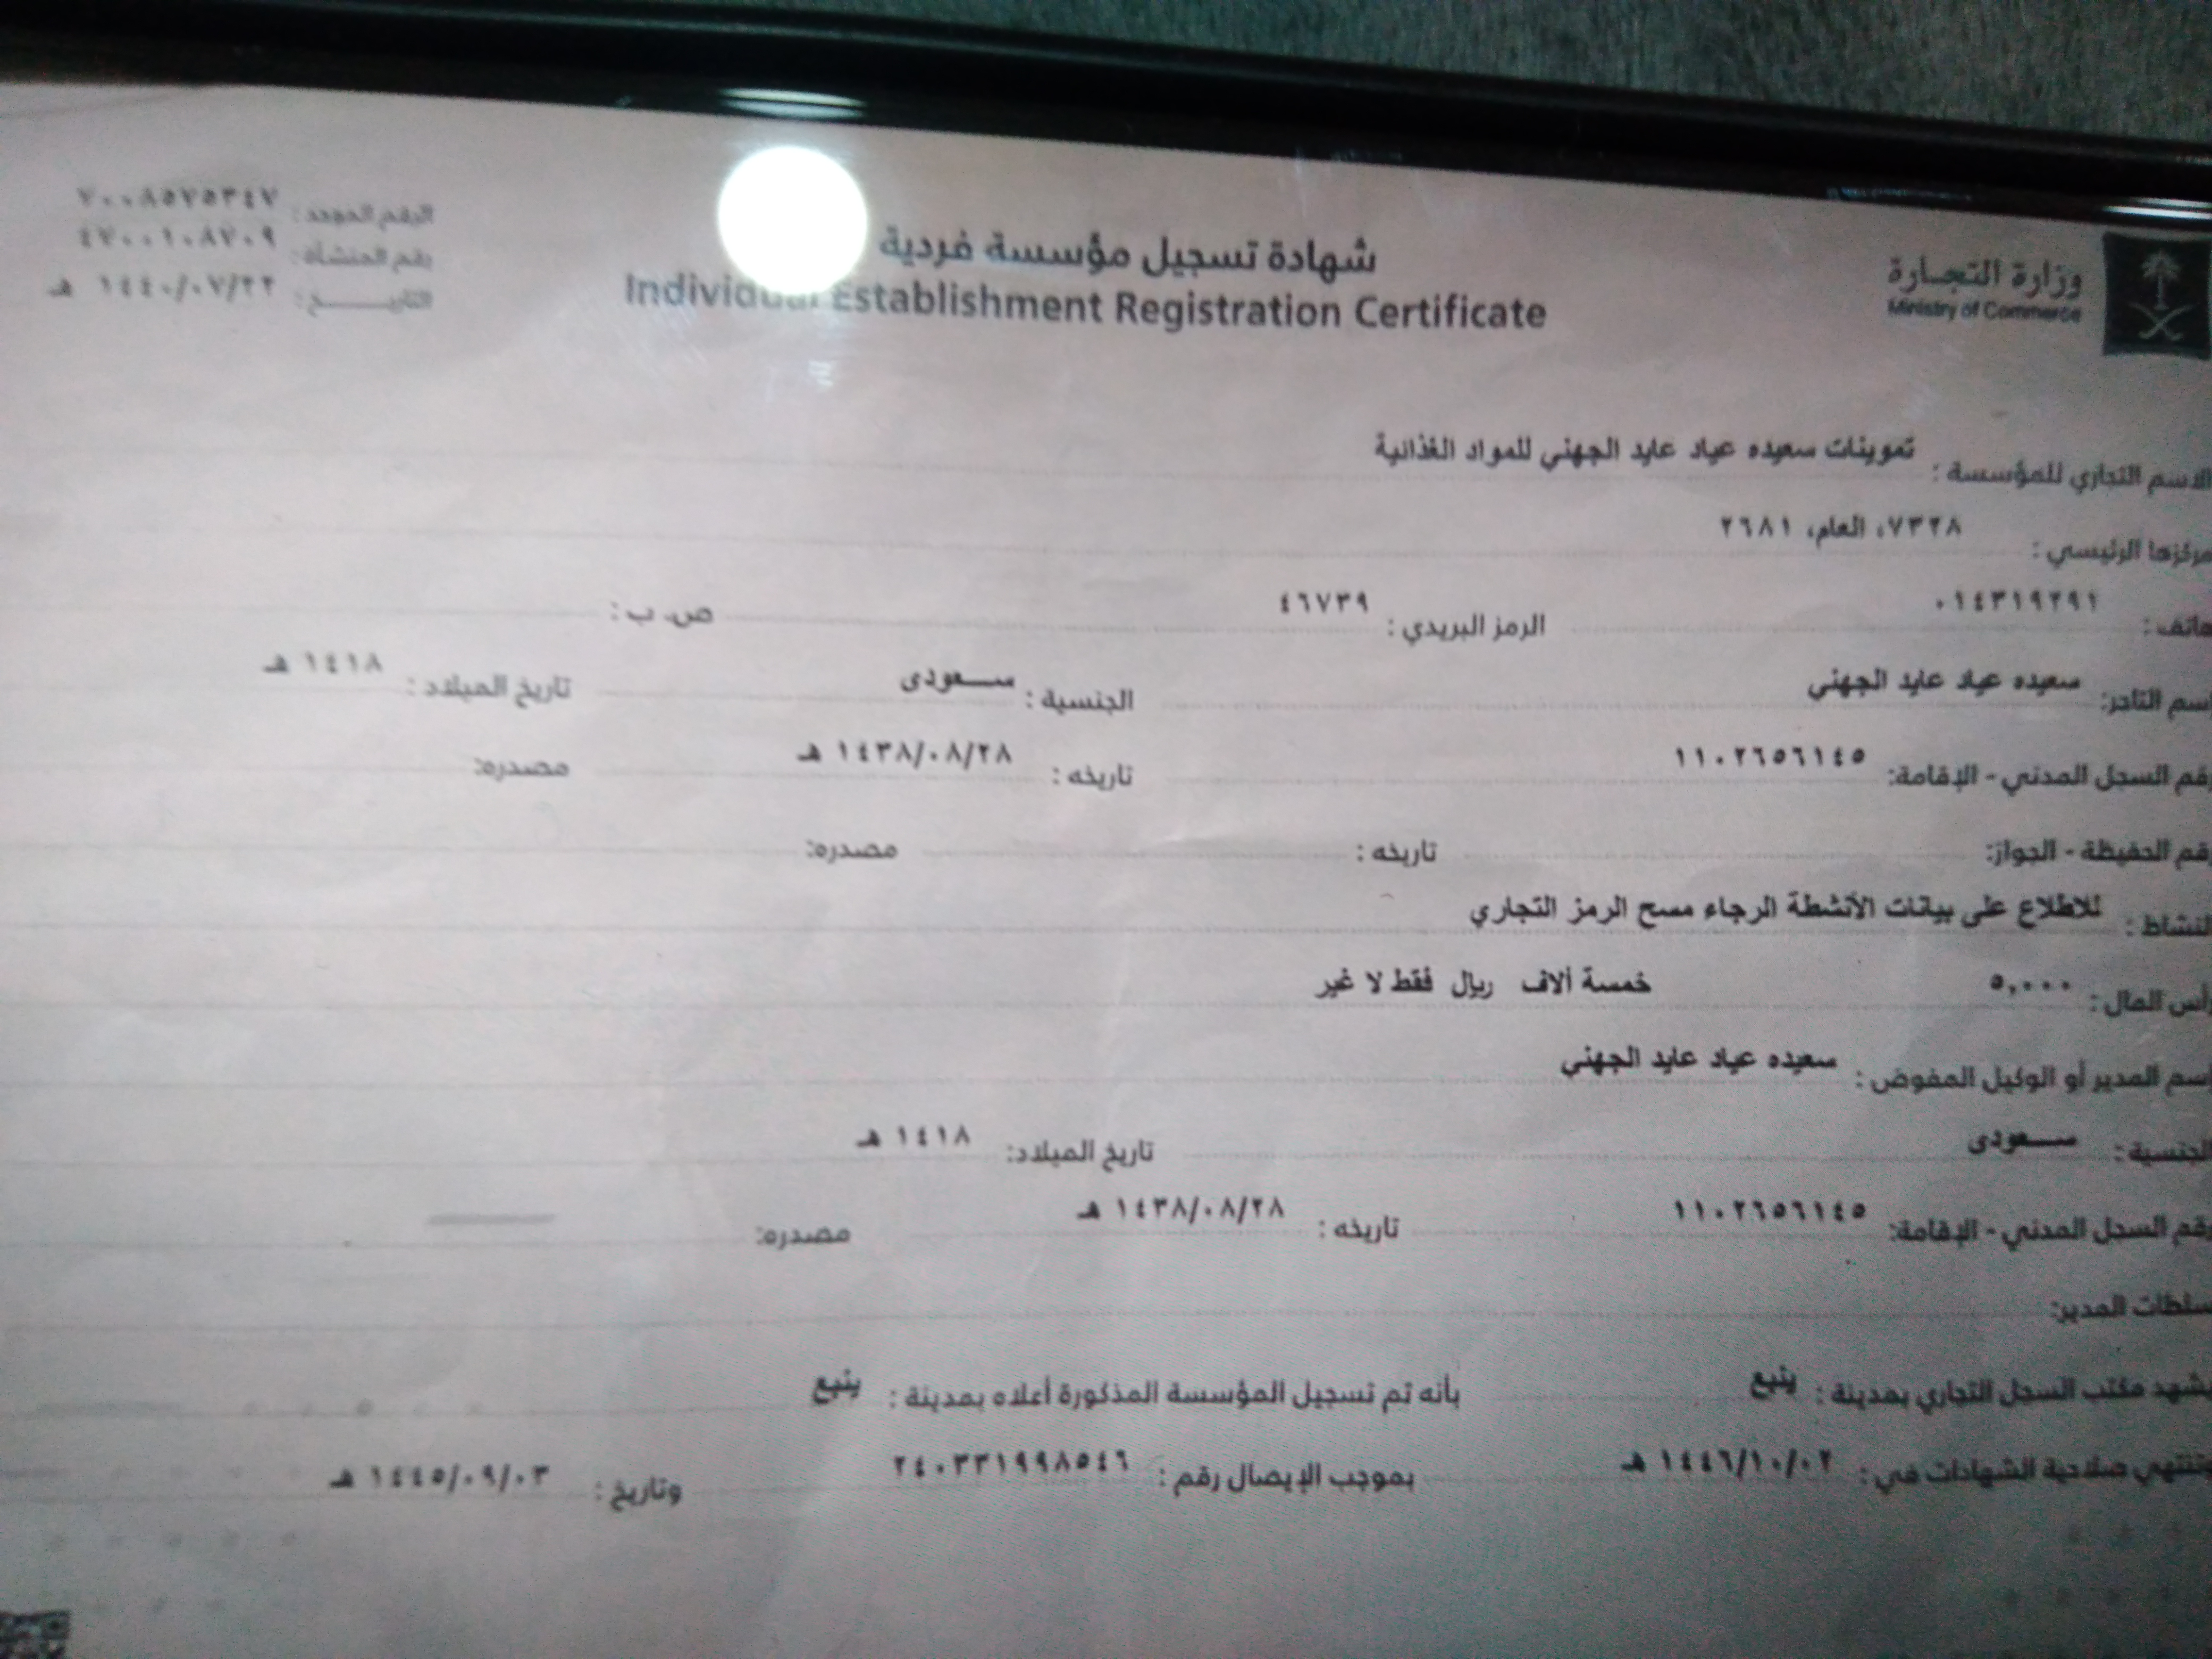 وزارة التجارة
Ministry of Commerce
شهادة تسجيل مؤسسة فردية
Individual Establishment Registration Certificate
الرقم الموحد : ٧٠٠٨٥٧٥٣٤٧
رقم المنشأة : ٤٧٠٠١٠٨٧٠٩
التاريـــــخ : ١٤٤٠/٠٧/٢٢ هـ
الاسم التجاري للمؤسسة : تموينات سعيده عياد عايد الجهني للمواد الغذائية
مركزها الرئيسي : ٧٣٢٨، العام، ٢٦٨١
هاتف : ٠١٤٣١٩٢٩١ الرمز البريدي : ٤٦٧٣٩ ص. ب :
إسم التاجر: سعيده عياد عايد الجهني الجنسية : ســـعودى تاريخ الميلاد : ١٤١٨ هـ
رقم السجل المدني - الإقامة: ١١٠٢٦٥٦١٤٥ تاريخه : ١٤٣٨/٠٨/٢٨ هـ مصدره:
رقم الحفيظة - الجواز: تاريخه : مصدره:
النشاط : للاطلاع على بيانات الأنشطة الرجاء مسح الرمز التجاري
رأس المال : ٥,٠٠٠ خمسة ألاف ريال فقط لا غير
إسم المدير أو الوكيل المفوض : سعيده عياد عايد الجهني
الجنسية : ســـعودى تاريخ الميلاد: ١٤١٨ هـ
رقم السجل المدني - الإقامة: ١١٠٢٦٥٦١٤٥ تاريخه : ١٤٣٨/٠٨/٢٨ هـ مصدره:
سلطات المدير:
يشهد مكتب السجل التجاري بمدينة : ينبع بأنه تم تسجيل المؤسسة المذكورة أعلاه بمدينة : ينبع
وتنتهي صلاحية الشهادات في : ١٤٤٦/١٠/٠٢ هـ بموجب الإيصال رقم : ٢٤٠٣٣١٩٩٨٥٤٦ وتاريخ : ١٤٤٥/٠٩/٠٣ هـ